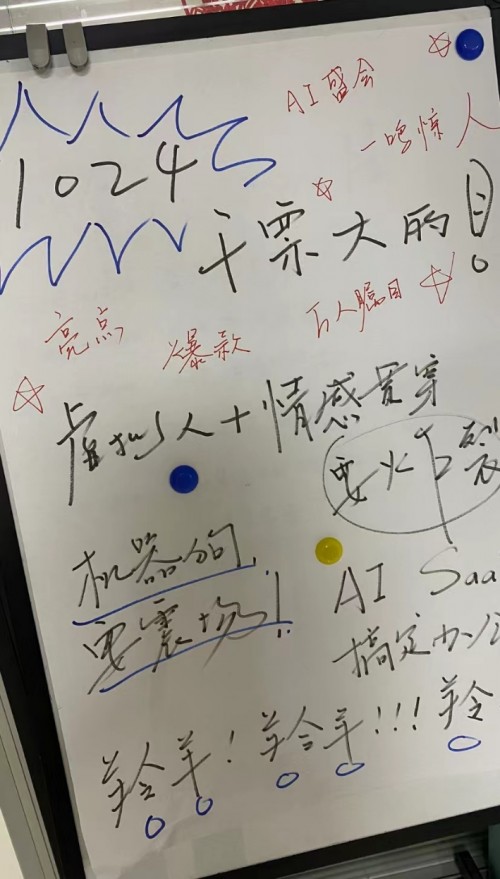 AI盛会
一鸣惊人
1024
干票大的！
亮点
爆款
万人瞩目
虚拟人+情感贯穿
要火炸裂
机器狗
要震场！
AI Saa
搞定办公
羚羊！羚羊！！！羚